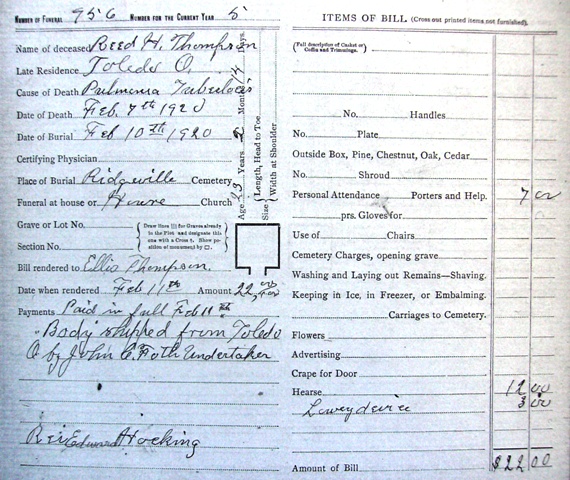 NUMBER OF FUNERAL 956 NUMBER FOR THE CURRENT YEAR 5
Name of deceased Reed H. Thompson
Late Residence Toledo O.
Cause of Death Pulmonia Tuberlocis
Date of Death Feb. 7th 1920
Date of Burial Feb 10th 1920
Certifying Physician
Place of Burial Ridgeville Cemetery
Funeral at house or House Church
Grave or Lot No.
Section No.
Draw lines for Graves already in the Plot and designate this one with a Cross †. Show position of monument by
Age 13 Years 2 Months 14 Days.
Size { Length, Head to Toe
Width at Shoulder
Bill rendered to Ellis Thompson.
Date when rendered Feb 11th Amount 22.00
Payments Paid in full Feb 11th
Body shipped from Toledo
O by John C. Foth Undertaker
Rev Edward Hocking
ITEMS OF BILL. (Cross out printed items not furnished).
(Full description of Casket or Coffin and Trimmings.
No. Handles
No. Plate
Outside Box, Pine, Chestnut, Oak, Cedar
No. Shroud
Personal Attendance Porters and Help. 7 00
prs. Gloves for
Use of Chairs
Cemetery Charges, opening grave
Washing and Laying out Remains—Shaving.
Keeping in Ice, in Freezer, or Embalming.
Carriages to Cemetery.
Flowers
Advertising
Crape for Door
Hearse 12 00
Lowey device 3 00
Amount of Bill $22 00